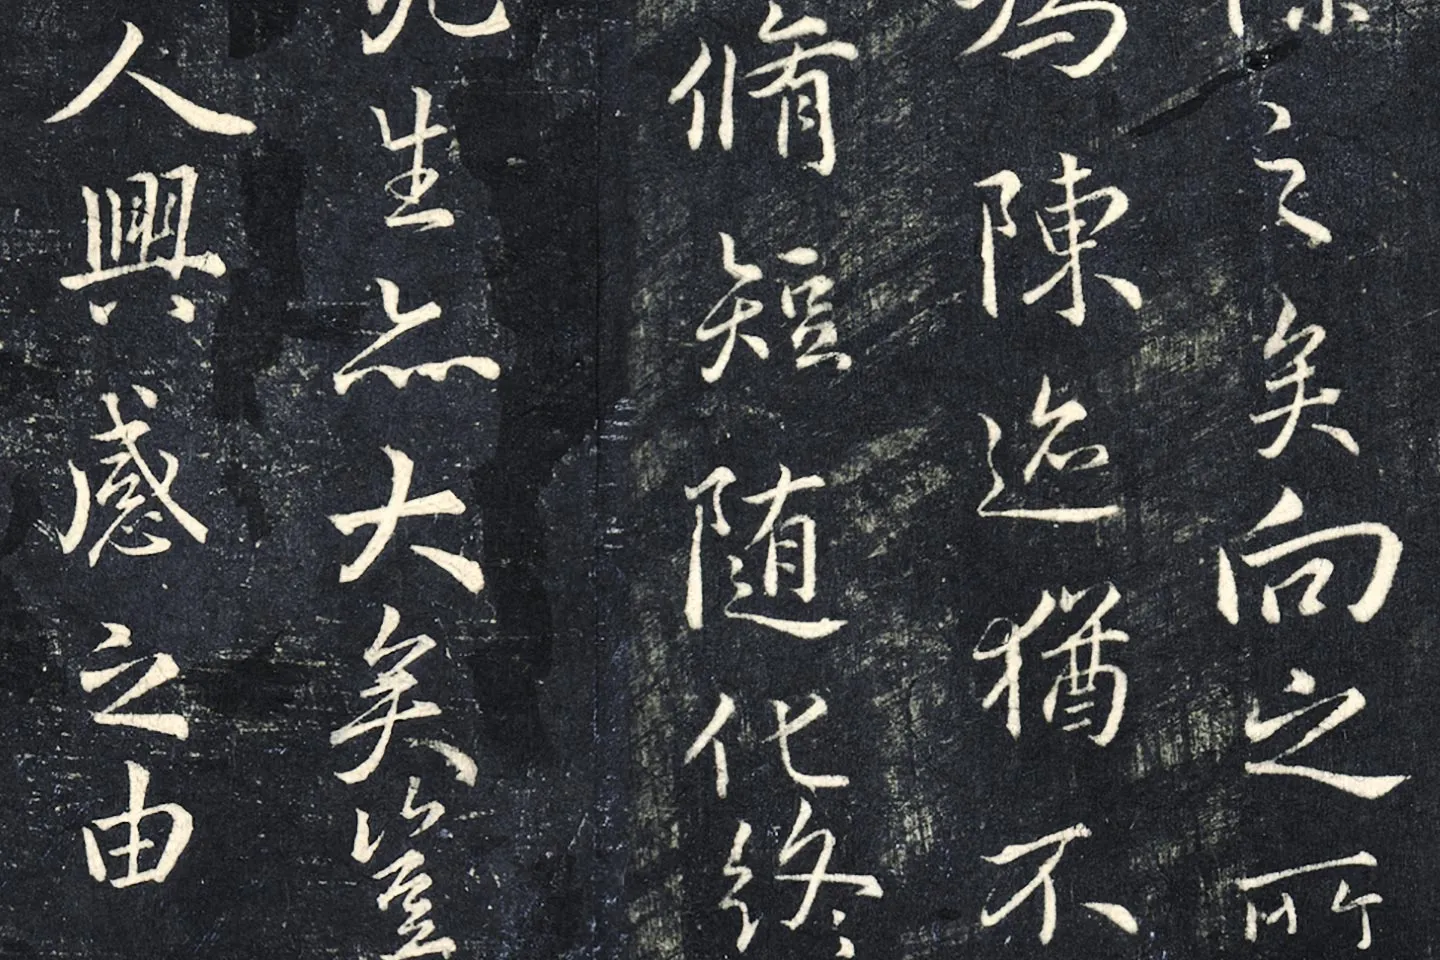 之矣向之所
為陳迹猶不
脩短随化終
死生亦大矣豈
人興感之由